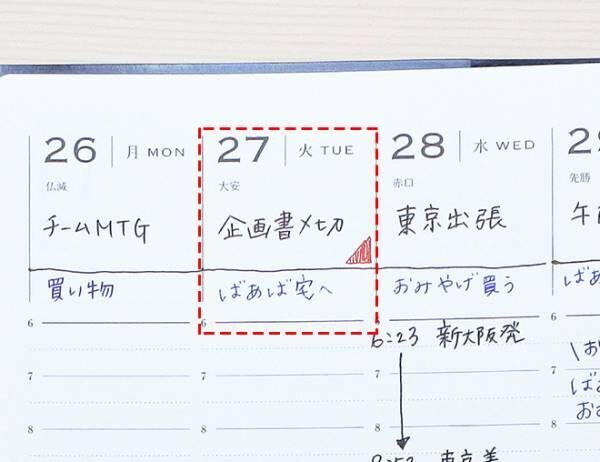 26 月 MON
仏滅
チームMTG
買い物
6
7
8
27 火 TUE
大安
企画書〆切
ばあば宅へ
6
7
8
28 水 WED
赤口
東京出張
おみやげ買う
6:23 新大阪発
7
8
東京着
先勝
午
ばあ
6
7
8